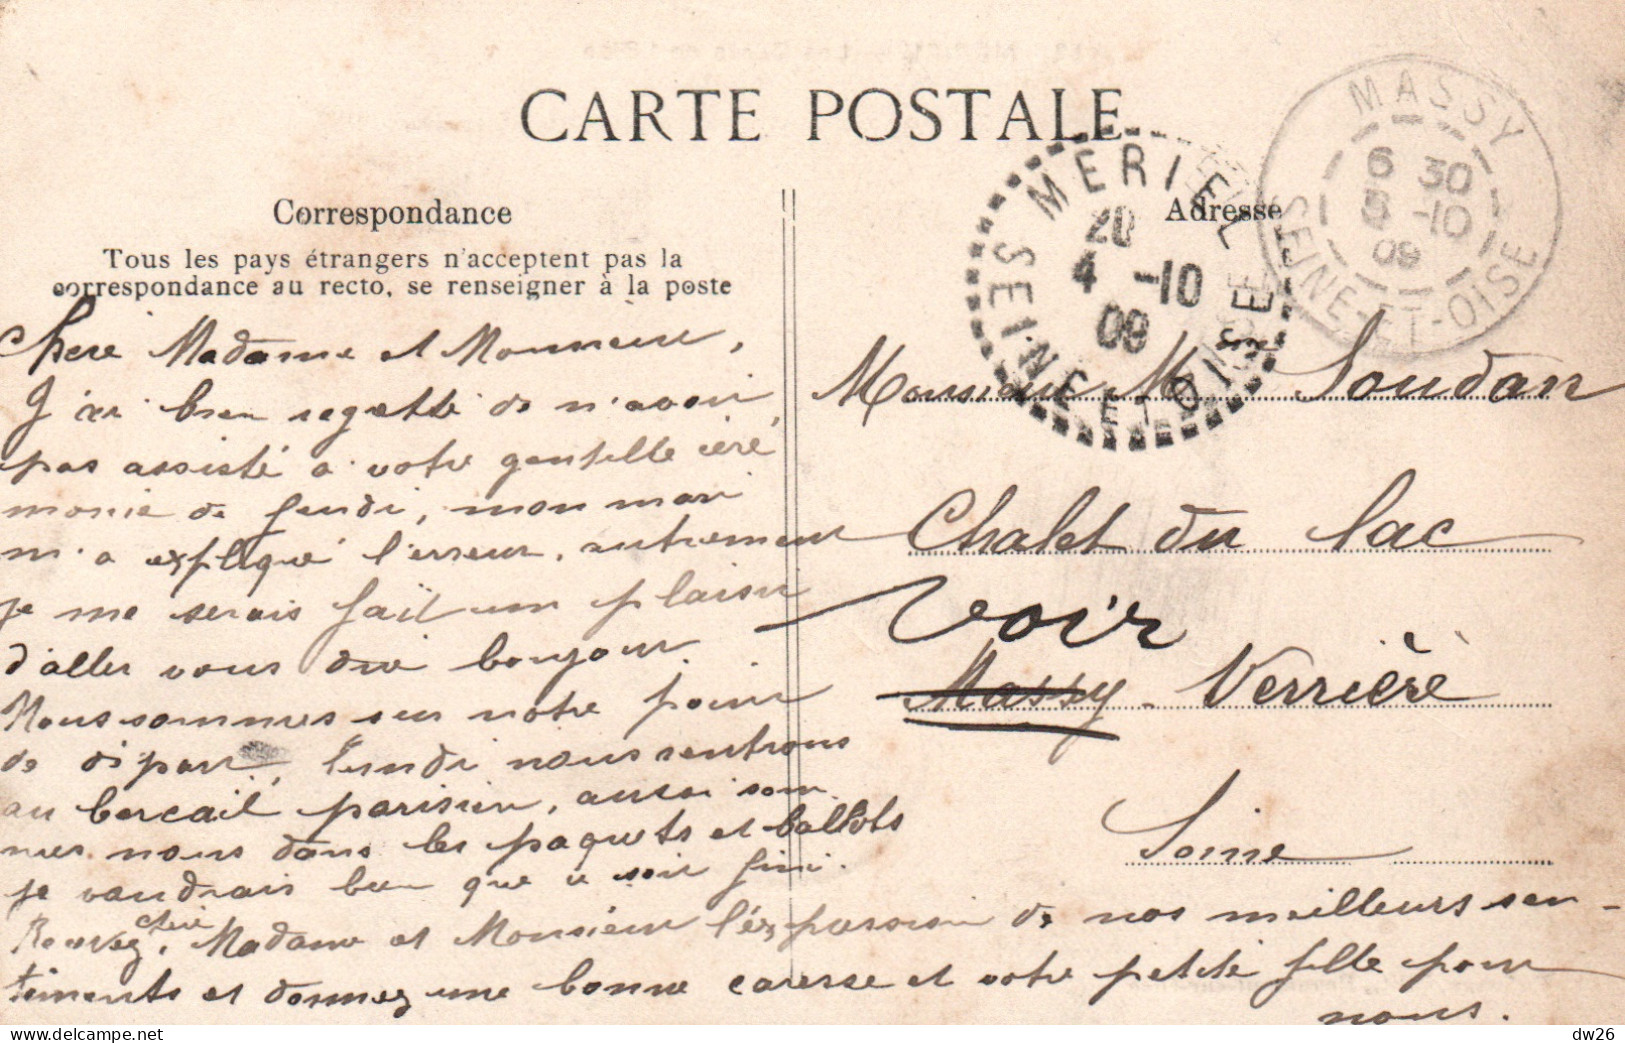 CARTE POSTALE
Correspondance
Tous les pays étrangers n'acceptent pas la
correspondance au recto, se renseigner à la poste
Adresse
MERIEL
20
4 -10
09
SEINE ET OISE
MASSY
6 30
5 -10
09
SEINE-ET-OISE
Chere Madame et Monsieur,
J'ai bien regretté de n'avoir
pas assisté a votre gentille céré
monie de jeudi, mon mari
m'a expliqué l'erreur, autrement
je me serais fait un plaisir
d'aller vous dire bonjour
Nous sommes sur notre point
de départ, lundi nous rentrons
au bercail parisien, aussi som
mes nous dans les paquets et ballots
je voudrais bien que ce soit fini.
Recevez, chère Madame et Monsieur l'expression de nos meilleurs sen-
timents et donnez une bonne caresse et votre petite fille pour
nous.
Monsieur Soudan
Chalet du lac
voir
Massy-Verrière
Soine
dw26